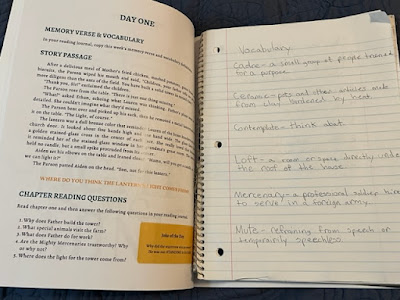 DAY ONE
MEMORY VERSE & VOCABULARY
In your reading journal, copy this week's memory verse and vocabulary
STORY PASSAGE
After a delicious meal of Mother's fried chicken, mashed potatoes,
biscuits, the Parson wiped his mouth and said, "Children, your
more diligent than the ants of the field. You have built a
"Thank you, Sir," exclaimed the children.
The Parson rose from the table. "There is just one thing missing."
"What?" asked Ethan, echoing what Lauren was thinking.
detailed. She couldn't imagine what they'd missed
The Parson bent over and picked up his sack.
it on the table. "The Light, of course."
The lantern was
church door. It looked about five hands high
a golden stained glass cross in the center of each
it reminded her of the stained glass window in
held no candle, but a small spike protruded from
Aiden set his elbows on the table and leaned
we can light it?"
The Parson patted Aiden on the head. "See, not
WHERE DO YOU THINK THE LANTERN'S LIGHT COMES FROM?
CHAPTER READING QUESTIONS
Read chapter one and then answer the following questions in your reading journal.
1. Why does Father build the tower?
2. What special animals visit the farm?
3. What does Father do for work?
4. Are the Mighty Mercenaries trustworthy? Why
or why not?
5. Where does the light for the tower come from?
Joke of the Day
Vocabulary
Cadre- a small group of people trained
for a purpose.
Ceramic- pots and other articles made
from clay hardened by heat.
Contemplate- think about.
Loft- a room or space directly under
the roof of the house.
Mercenary- a professional soldier hired
to serve in a foreign army.
Mute- refraining from speech or
temporarily speechless